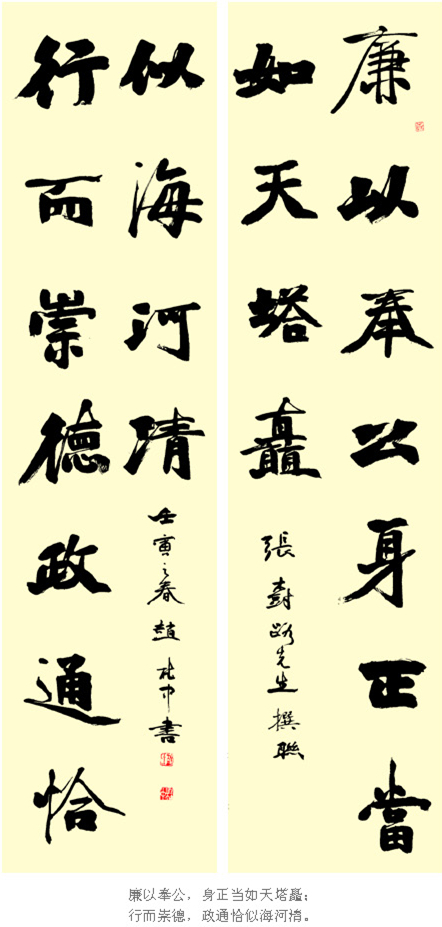 廉以奉公身正當
如天塔矗
張路先生撰聯
行而崇德政通恰
似海河清
壬寅之春趙中書
廉以奉公，身正当如天塔矗；
行而崇德，政通恰似海河清。